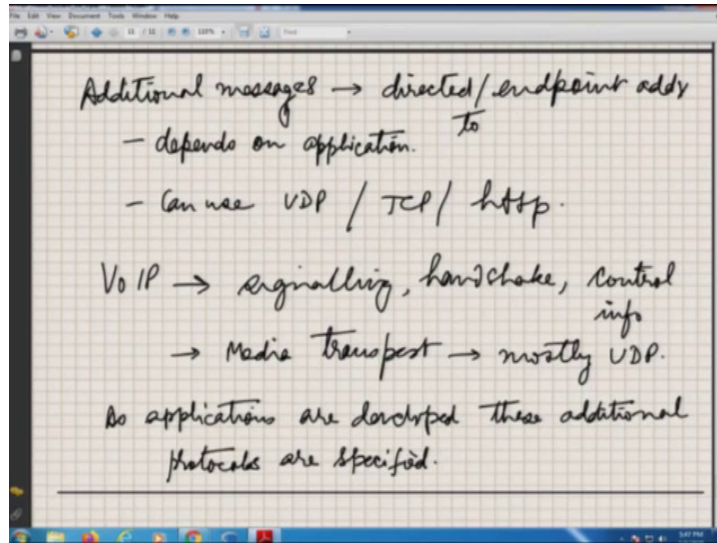 File Edit View Document Tools Window Help
11 / 11
Find
Additional messages → directed / endpoint addr
to
- depends on application.
- Can use UDP / TCP / http.
VoIP → signalling, handshake, control
info
→ Media transport → mostly UDP.
As applications are developed these additional
protocols are specified.
5:47 PM